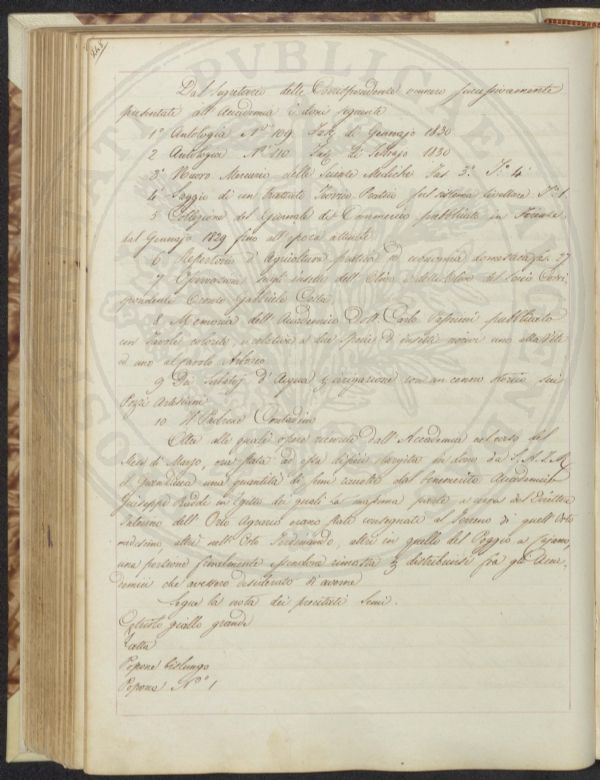 Dal Segretario delle Corrispondenze vennero successivamente
presentati all'Accademia i doni seguenti
1° Antologia N° 109 Fas. di Gennajo 1830
2 Antologia N° 110 Fas. di Febbrajo 1830
3° Nuovo Mercurio delle Scienze Mediche Fas 3° T° 4°
4° Saggio di un trattato Teorico Pratico sul sistema livellare T° 1
5 Collezione del Giornale di Commercio pubblicato in Firenze
dal Gennajo 1829 fino all'epoca attuale
6 Repertorio d'Agricoltura pratica ed economia domestica fas. 27
7 Osservazioni sugli insetti dell'Olivo e delle Olive del Socio Corri
spondente Oronzio Gabriele Costa
8 Memoria dell'Accademico Dott. Carlo Passerini pubblicata
con tavole colorite, e relative a due specie d'insetti nocivi uno alla Vite
ed uno al Cavolo Arboreo
9 Dei d'Acqua e irrigazione con un cenno storico sui
Pozzi Artesiani
10 Il Padrone Contadino
Oltre alle quali opere ricevute dall'Accademia nel corso del
Mese di Marzo, era stata ad essa di più elargita in dono da S. A. I. e R.
il Granduca una quantità di semi raccolti dal benemerito Accademico
Giuseppe Raddi in Egitto dei quali la massima parte a cura del Direttore
dell'Orto Agrario erano stati consegnati al Terreno di quell'Orto
medesimo, altri nell'Orto Ferdinando, altri in quello del Poggio a Cajano,
una porzione finalmente essendone rimasta da distribuirsi fra gli Acca
demici che avessero desiderato di averne
Segue la nota dei precitati Semi.
Cetriolo giallo grande
Fatta
Popone bislungo
Popone N° 1
PVBLICAE